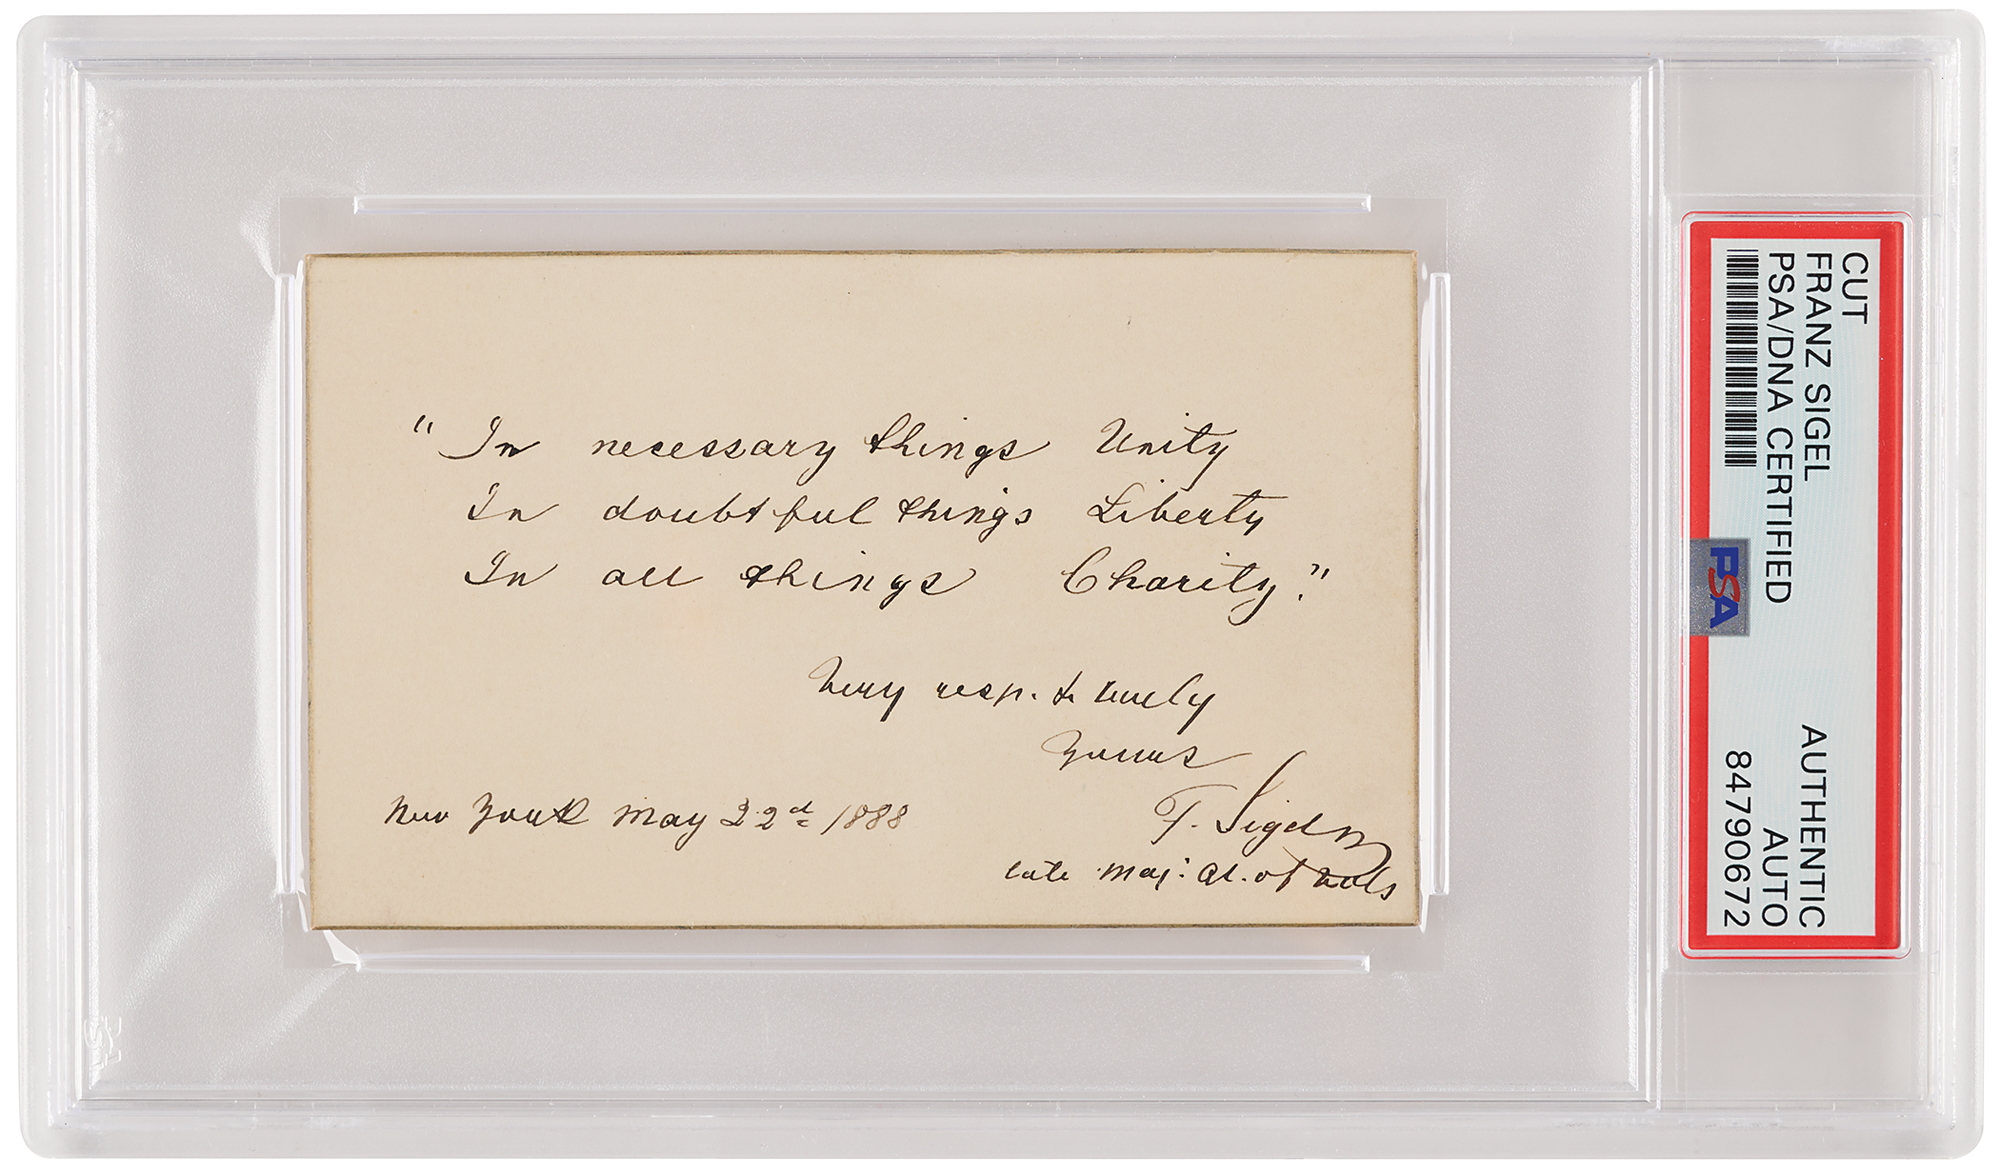 " In necessary things Unity
In doubtful things Liberty
In all things Charity."
Very resp. & truly
Yours
F. Sigel
New York May 22d 1888
late Maj: Gl. of Vols
CUT
FRANZ SIGEL
PSA/DNA CERTIFIED
AUTHENTIC
AUTO
84790672
PSA